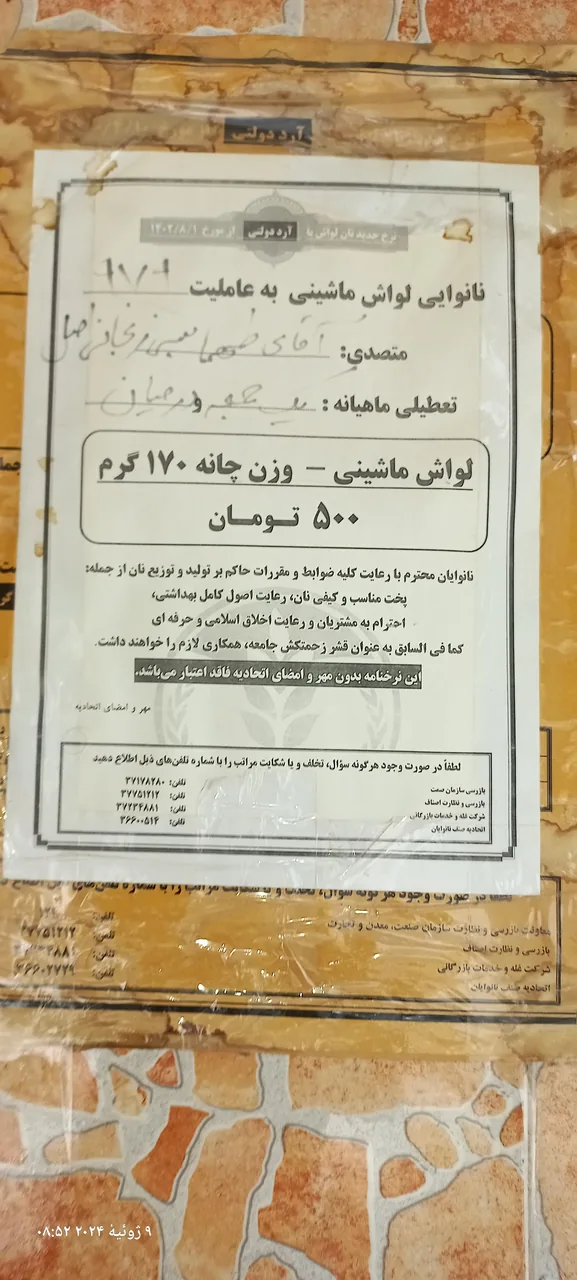 آرد دولتی
نرخ جدید نان لواش با آرد دولتی از مورخ ۱۴۰۲/۸/۱
نانوایی لواش ماشینی به عاملیت
متصدی: آقای
تعطیلی ماهیانه : و
لواش ماشینی – وزن چانه ۱۷۰ گرم
۵۰۰ تـومـان
نانوایان محترم با رعایت کلیه ضوابط و مقررات حاکم بر تولید و توزیع نان از جمله:
پخت مناسب و کیفی نان، رعایت اصول کامل بهداشتی،
احترام به مشتریان و رعایت اخلاق اسلامی و حرفه ای
کما فی السابق به عنوان قشر زحمتکش جامعه، همکاری لازم را خواهند داشت.
این نرخنامه بدون مهر و امضای اتحادیه فاقد اعتبار می‌باشد.
مهر و امضای اتحادیه
لطفاً در صورت وجود هرگونه سؤال، تخلف و یا شکایت مراتب را با شماره تلفن‌های ذیل اطلاع دهید
بازرسی سازمان صمت تلفن: ۳۷۱۷۸۲۸۰
بازرسی و نظارت اصناف تلفن: ۳۷۷۵۱۲۱۲
شرکت غله و خدمات بازرگانی تلفن: ۳۷۲۳۴۸۸۱
اتحادیه صنف نانوایان تلفن: ۳۶۶۰۰۵۱۴
لطفا در صورت وجود هرگونه سؤال، تخلف و یا شکایت مراتب را با شماره تلفن‌های ذیل اطلاع
معاونت بازرسی و نظارت سازمان صنعت، معدن و تجارت تلفن:
بازرسی و نظارت اصناف تلفن: ۳۷۷۵۱۲۱۲
شرکت غله و خدمات بازرگانی تلفن:
اتحادیه صنف نانوایان تلفن: ۳۶۶۰۲۷۲۹
۹ ژوئیهٔ ۲۰۲۴ ۰۸:۵۲